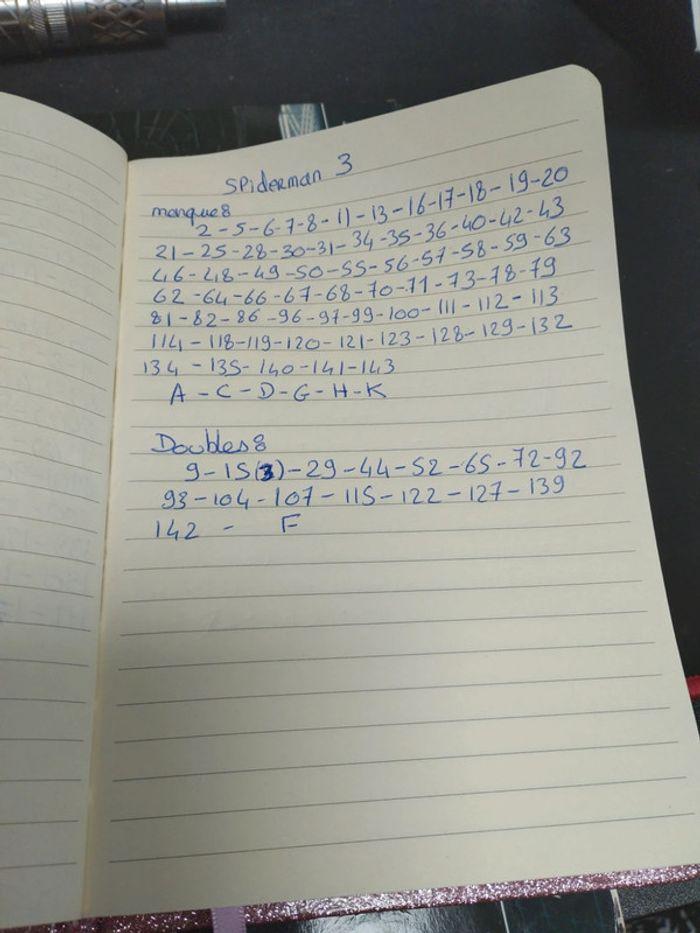 Spiderman 3
manque:
2-5-6-7-8-11-13-16-17-18-19-20
21-25-28-30-31-34-35-36-40-42-43
46-48-49-50-55-56-57-58-59-63
62-64-66-67-68-70-71-73-78-79
81-82-86-96-97-99-100-111-112-113
114-118-119-120-121-123-128-129-132
134-135-140-141-143
A-C-D-G-H-K
Doubles:
9-15(3)-29-44-52-65-72-92
93-104-107-115-122-127-139
142 - F